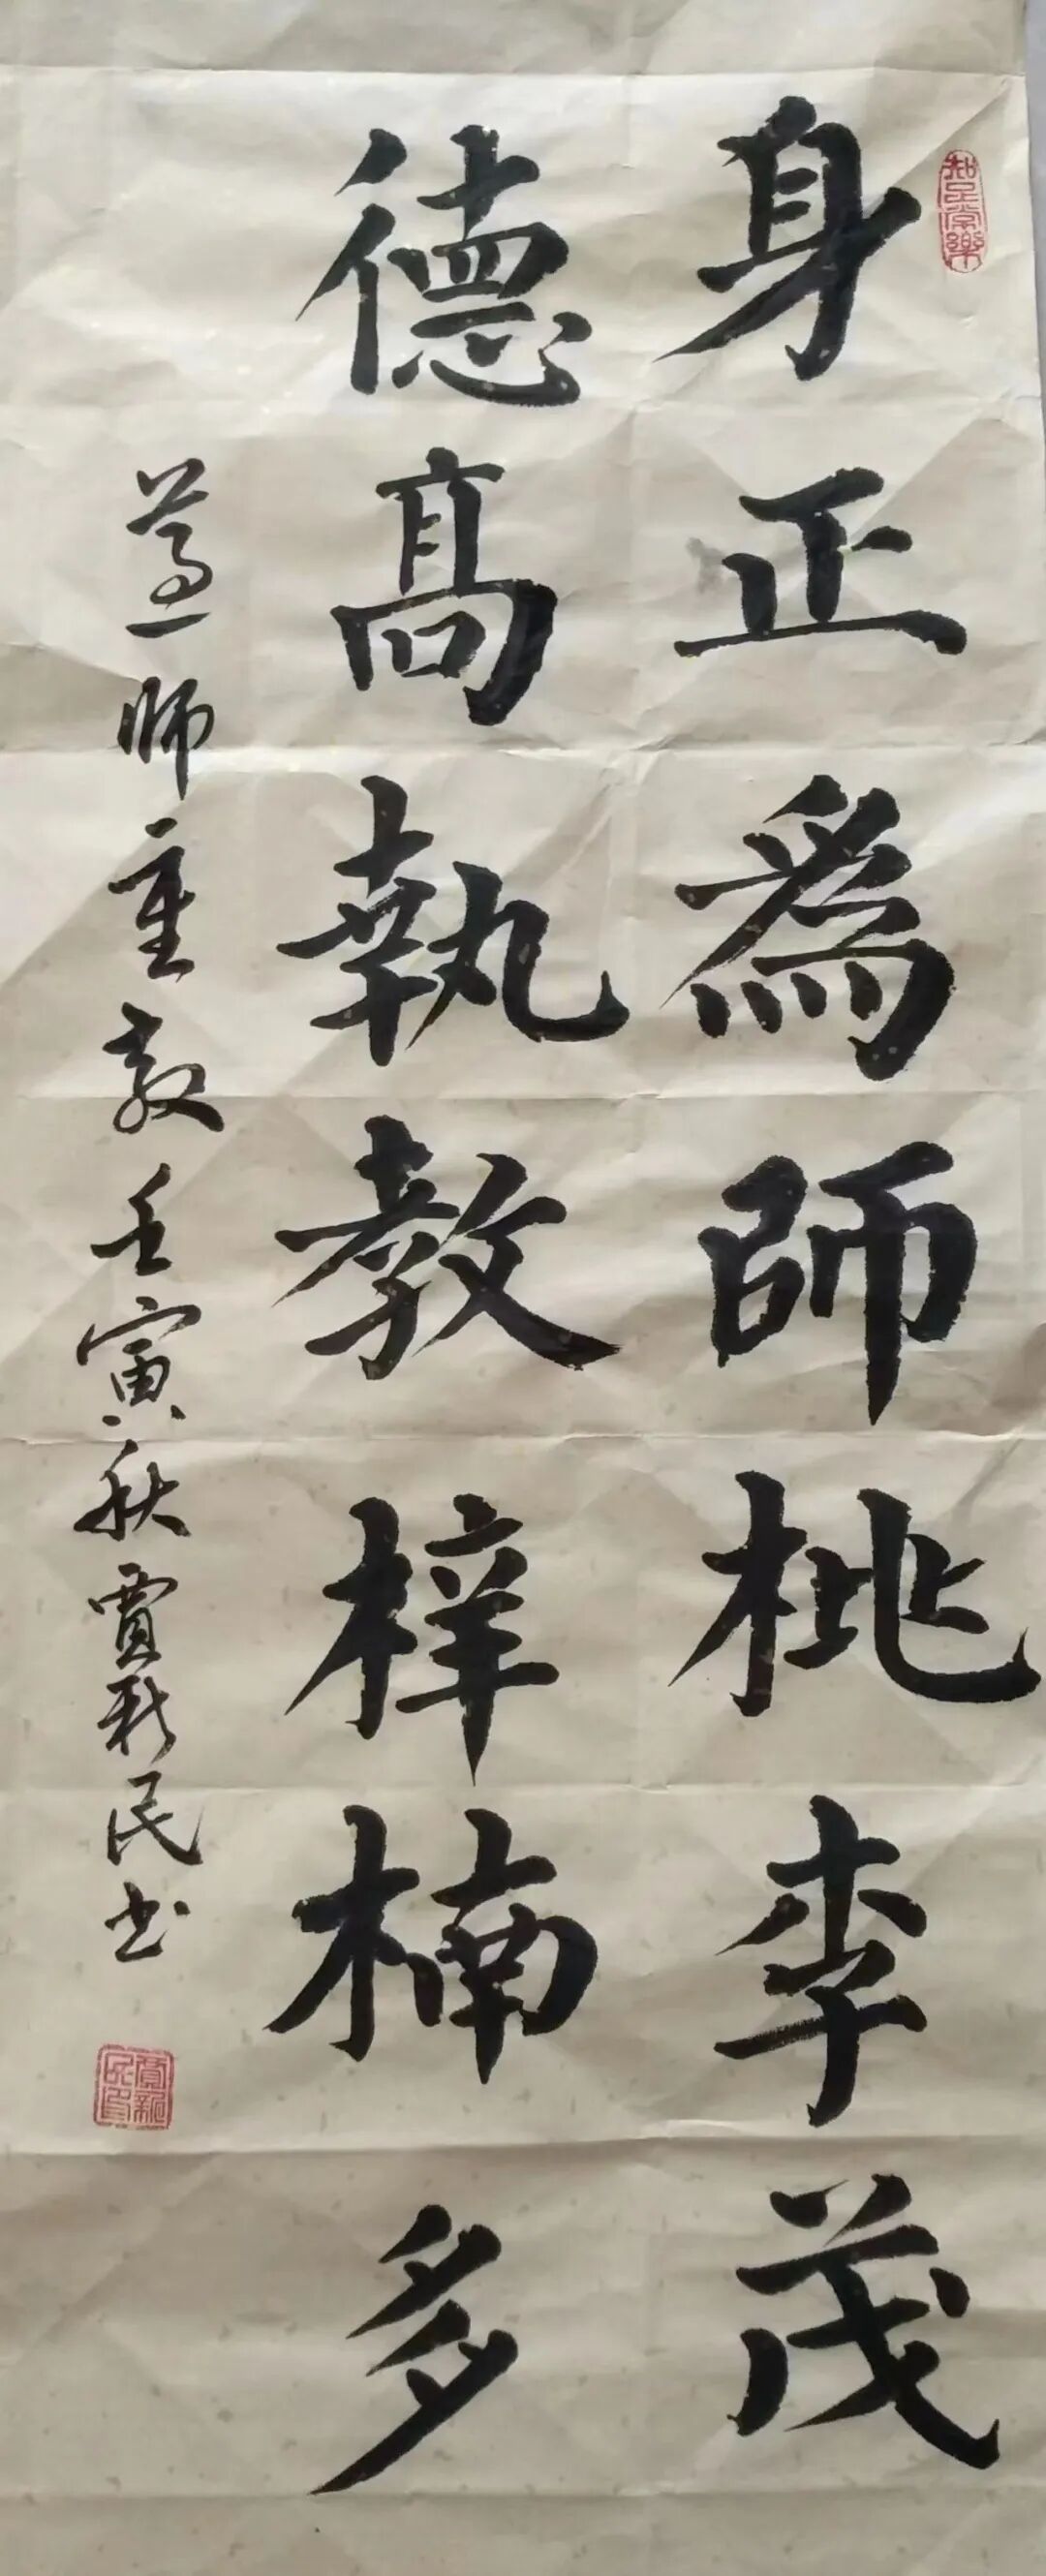 知足常樂
身正為師桃李茂
德高執教梓楠多
尊師重教壬寅秋賈新民书
賈新民印